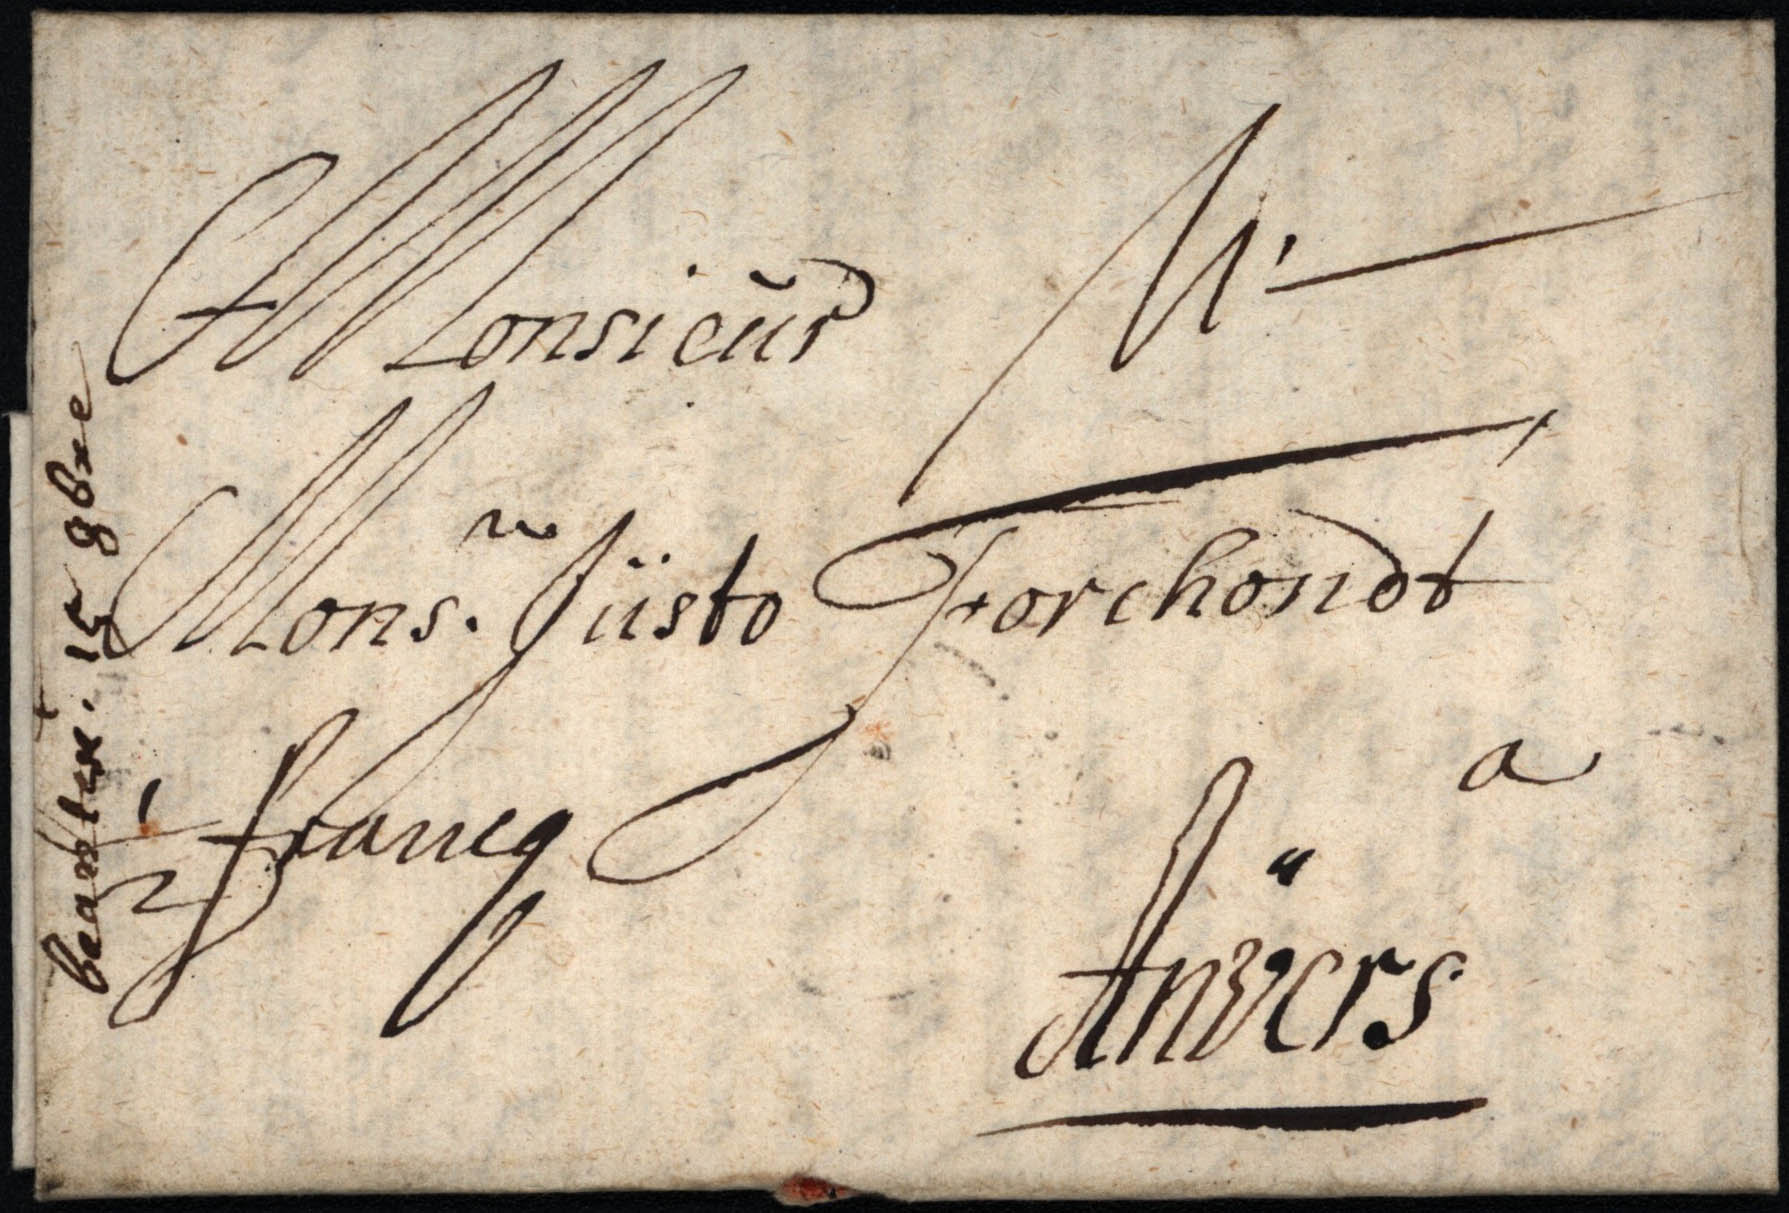 Monsieur
Mons.r Justo Forchondt
francq
a
Anvers
beantw. 15 9bre